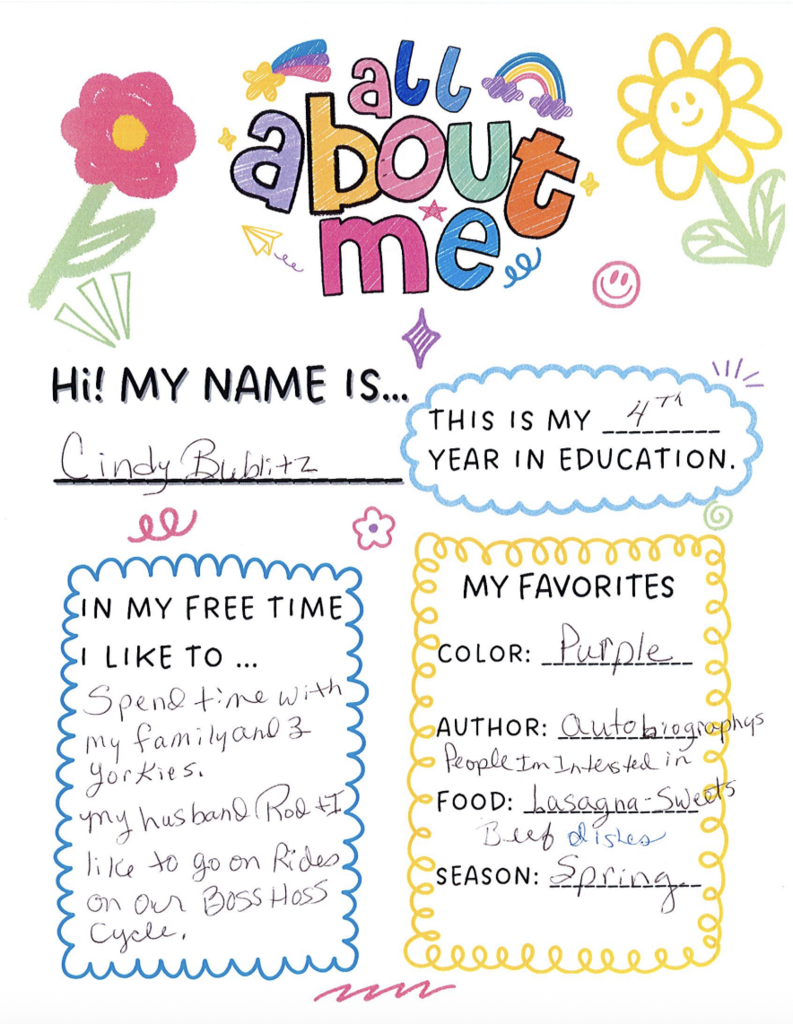 all
about
me
Hi! MY NAME IS...
Cindy Bublitz
THIS IS MY 4TH
YEAR IN EDUCATION.
IN MY FREE TIME
I LIKE TO ...
Spend time with
my family and 3
Yorkies.
my husband Rod + I
like to go on Rides
on our Boss Hoss
Cycle.
MY FAVORITES
COLOR: Purple
AUTHOR: autobiographys
People Im Intersted in
FOOD: Lasagna - Sweets
Beef dishes
SEASON: Spring